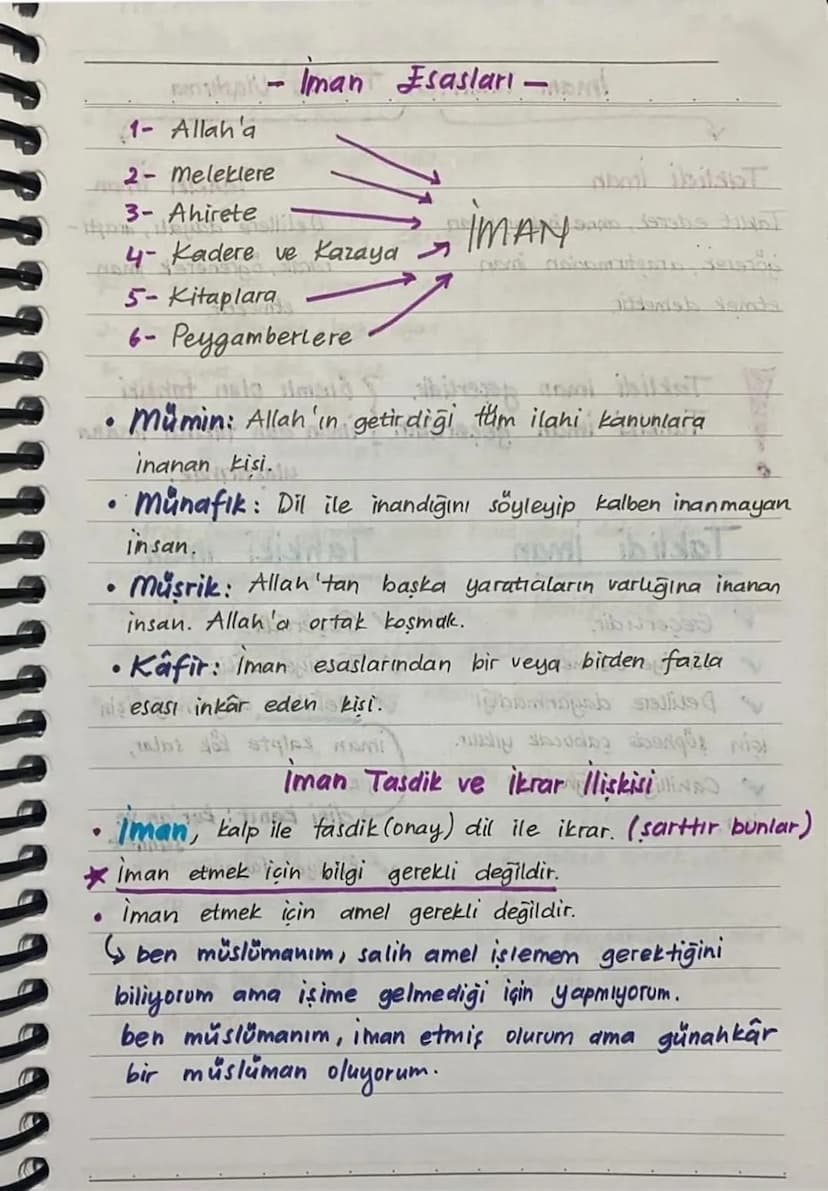 - İman Esasları -
1- Allah'a
2- Meleklere
3- Ahirete
4- Kadere ve Kazaya
5- Kitaplara
6- Peygamberlere
İMAN
• Mümin: Allah'ın getirdiği tüm ilahi kanunlara
inanan kişi.
• Münafık: Dil ile inandığını söyleyip kalben inanmayan
insan.
• Müşrik: Allah'tan başka yaratıcıların varlığına inanan
insan. Allah'a ortak koşmak.
• Kâfir: İman esaslarından bir veya birden fazla
esası inkâr eden kişi.
İman Tasdik ve İkrar İlişkisi
• İman, kalp ile tasdik (onay) dil ile ikrar. (şarttır bunlar)
★ İman etmek için bilgi gerekli değildir.
• İman etmek için amel gerekli değildir.
↳ ben müslümanım, salih amel işlemen gerektiğini
biliyorum ama işime gelmediği için yapmıyorum.
ben müslümanım, iman etmiş olurum ama günahkâr
bir müslüman oluyorum.